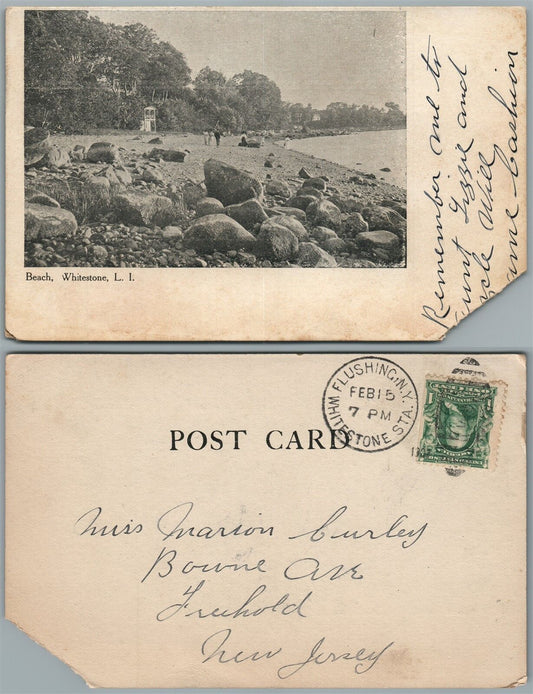 Remember me to
Aunt Lizzie and
Uncle Will
Beach, Whitestone, L. I.
POST CARD
FLUSHING, N.Y.
FEB 15
7 PM
WHITESTONE STA.
Miss Marion Curley
Bowne Ave
Freehold
New Jersey